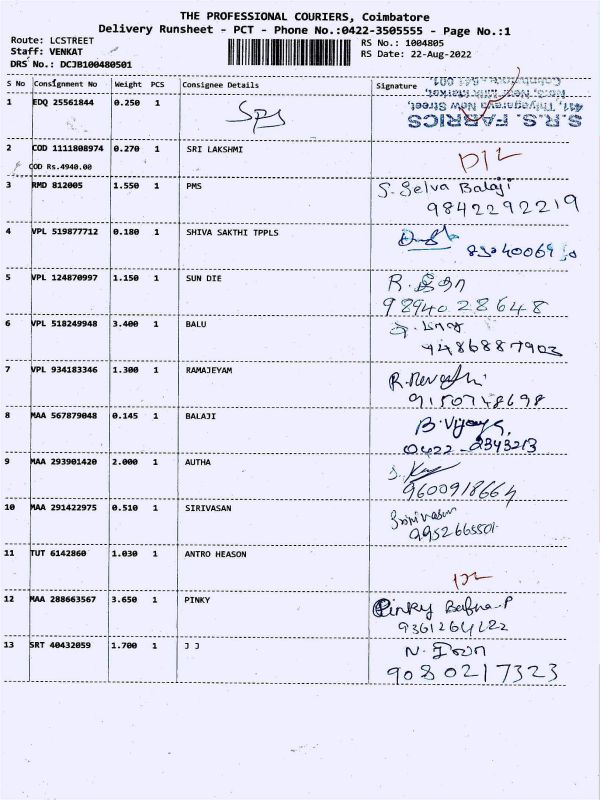 THE PROFESSIONAL COURIERS, Coimbatore
Delivery Runsheet - PCT - Phone No.:0422-3505555 - Page No.:1
Route: LCSTREET
Staff: VENKAT
DRS No.: DCJB100480501
RS No.: 1004805
RS Date: 22-Aug-2022
S No Consignment No Weight PCS Consignee Details Signature
411, Thiyagaraya New Street,
S.R.S. FABRICS
1 EDQ 25561844 0.250 1
2 COD 1111808974 0.270 1 SRI LAKSHMI D/L
COD Rs.4940.00
3 RMD 812005 1.550 1 PMS S. Selva Balaji
9842292219
4 VPL 519877712 0.180 1 SHIVA SAKTHI TPPLS
5 VPL 124870997 1.150 1 SUN DIE
9894028648
6 VPL 518249948 3.400 1 BALU
7 VPL 934183346 1.300 1 RAMAJEYAM
9150748698
8 MAA 567879048 0.145 1 BALAJI B. Vijaya
0422-2343213
9 MAA 293901420 2.000 1 AUTHA
9600918664
10 MAA 291422975 0.510 1 SIRIVASAN Srinivasan
9952665501
11 TUT 6142860 1.030 1 ANTRO HEASON
12 MAA 288663567 3.650 1 PINKY Pinky Bafna.P
13 SRT 40432059 1.700 1 J J
9080217323